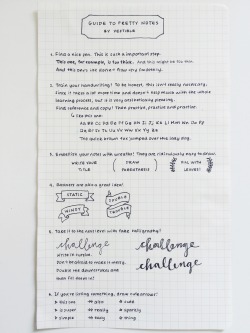 GUIDE TO PRETTY NOTES
BY VESTIBLE
1. Find a nice pen. This is such an important step.
This one, for example, is too thick. And this might be too thin.
And this pen's ink doesn't flow very smoothly.
2. Train your handwriting! To be honest, this isn't really necessary,
since it takes a lot more time and doesn't help much with the whole
learning process, but it is very aesthetically pleasing.
Find references and copy! Then practise, practise and practise.
↳ like this one:
Aa Bb Cc Dd Ee Ff Gg Hh Ii Jj Kk Ll Mm Nn Oo Pp
Qq Rr Ss Tt Uu Vv Ww Xx Yy Zz
The quick brown fox jumped over the lazy dog.
3. Embellish your notes with wreaths! They are ridiculously easy to draw.
WRITE YOUR TITLE
DRAW PARENTHESIS
FILL WITH LEAVES!
4. Banners are also a great idea!
STATIC
WINDY
DOUBLE
TROUBLE
5. Take it to the next level with fake calligraphy!
challenge
Write in cursive.
Don't be afraid to make it wavy.
Double the downstrokes and
then fill them in!
challenge
challenge
6. If you're listing something, draw cute arrows!
this one
also
cute
super
really
simple
easy
thing